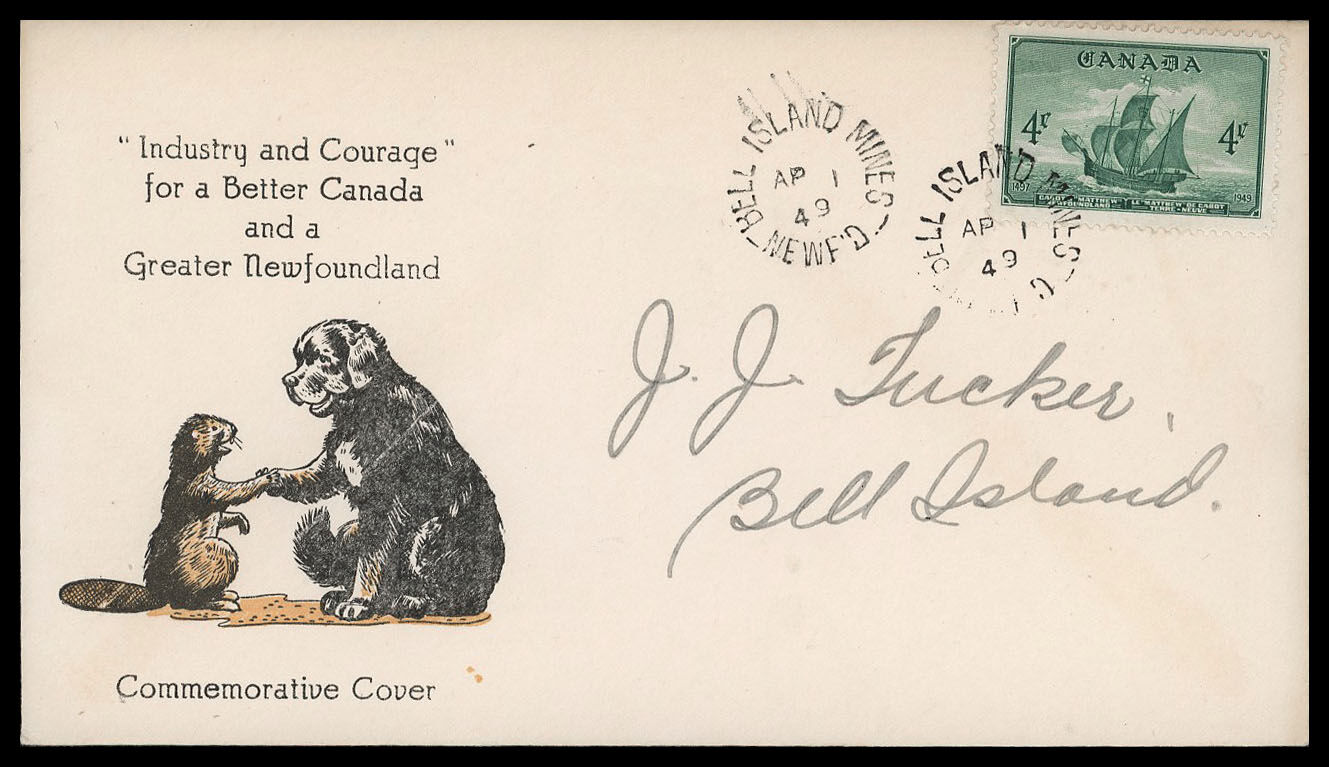 "Industry and Courage"
for a Better Canada
and a
Greater Newfoundland
Commemorative Cover
BELL ISLAND MINES
AP 1
49
NEWF'D
BELL ISLAND MINES
AP 1
49
CANADA
4¢ 4¢
1497 1949
CABOT'S MATTHEW LE MATTHEW DE CABOT
NEWFOUNDLAND TERRE-NEUVE
J. J. Tucker,
Bell Island.